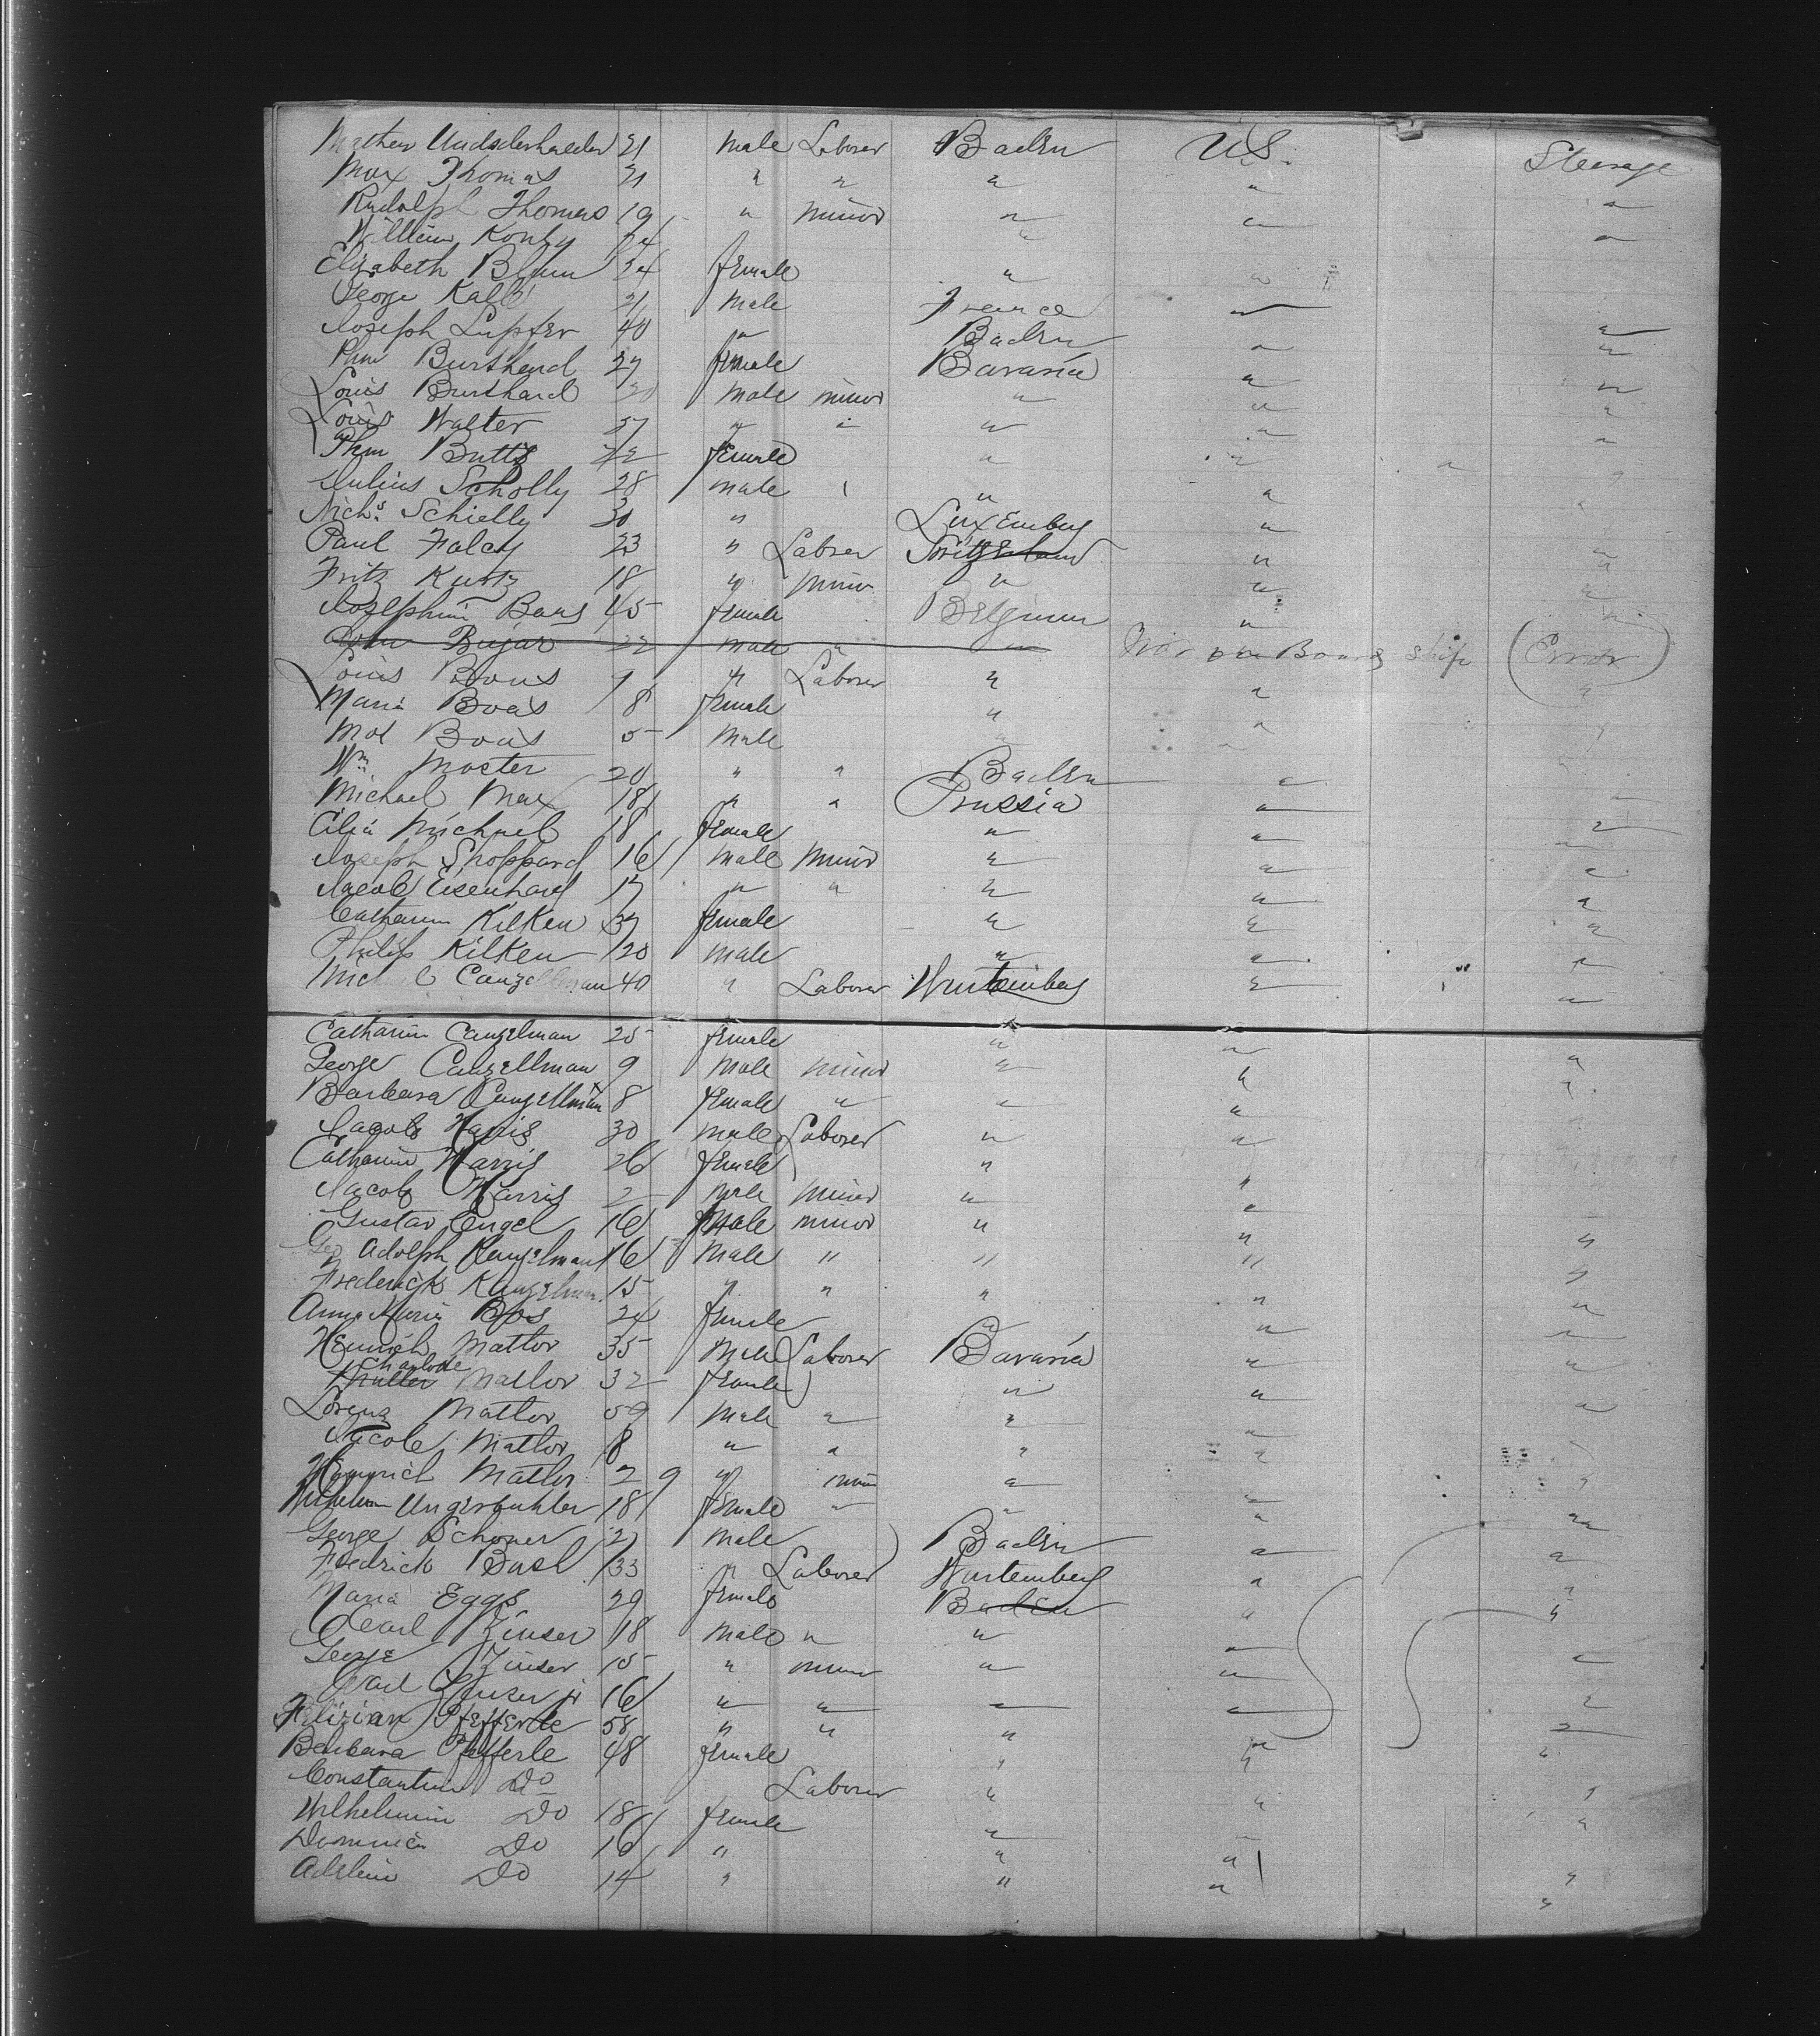 Mathew 21 male Laborer Baden U.S. Steerage
Max Thomas 21 " " " " "
Rudolph Thomas 19 " minor " " "
William 24 "
Elizabeth Blum 24 female " "
George Kalb 21 male France "
Joseph Lupfer 40 " Baden " "
Burkhard 27 female Bavaria " "
Louis Burkhard male minor " " "
Louis Walter 57 " " " " "
Buttz female " " " "
Julius Scholly 28 male " "
Nichs. Schielly 30 " Luxemburg "
Paul Falcy 23 " Laborer Switzerland " "
Fritz Kurtz 18 " minor " " "
Josephine Boas 45 female Belgium " "
22 male " " Was on Board Ship (Error)
Louis Boas " Laborer " " "
Maria Boas 8 female " " "
Boas 5 male " "
Wm Moster 20 " " Baden "
Michael Max 18 " " Prussia " "
Michael 18 female " " "
Joseph Shoppard 16 male minor " " "
Jacob Eisenhard 17 " " " " "
Catharin Kilken 37 female " " "
Philip Kilken 20 male " " "
40 " Laborer Wurtemberg " "
Catharin Canzelman 25 female " " "
George Canzellman 9 male minor " " "
Barbara Canzellman 8 female " " "
Jacob Harris 30 male Laborer " "
Catharin Harris 26 female " "
Jacob Harris 2 male minor " "
Gustav Engel 16 male minor " " "
Geo Adolph Kanzelman 16 male " " " "
Frederick Kanzelman 15 " " " " "
Anna Maria Bos 24 female " " "
Heinrich Mattor 35 male Laborer Bavaria " "
Charlotte
Mattor 32 female " " "
Lorenz Mattor 59 male " " "
Jacob Mattor 8 " " " "
Heinrich Mattor 2 9 " minor " " "
Ungerbuhler 18 female " " "
George Schoner male Baden " "
Fredrick Basl 33 " Laborer Wurtemberg " "
Maria Eggs 29 female Baden " "
Carl Zinser 18 male " " " "
George Zinser 15 " minor " " "
Carl Zinser jr 16 " " " " "
Pfefferle 58 " " " " "
Barbara Pfefferle 48 female " "
Constantin Do Laborer " " "
Wilhelmin Do 18 female " " "
Do 16 " " " "
Adelein Do 14 " " " "